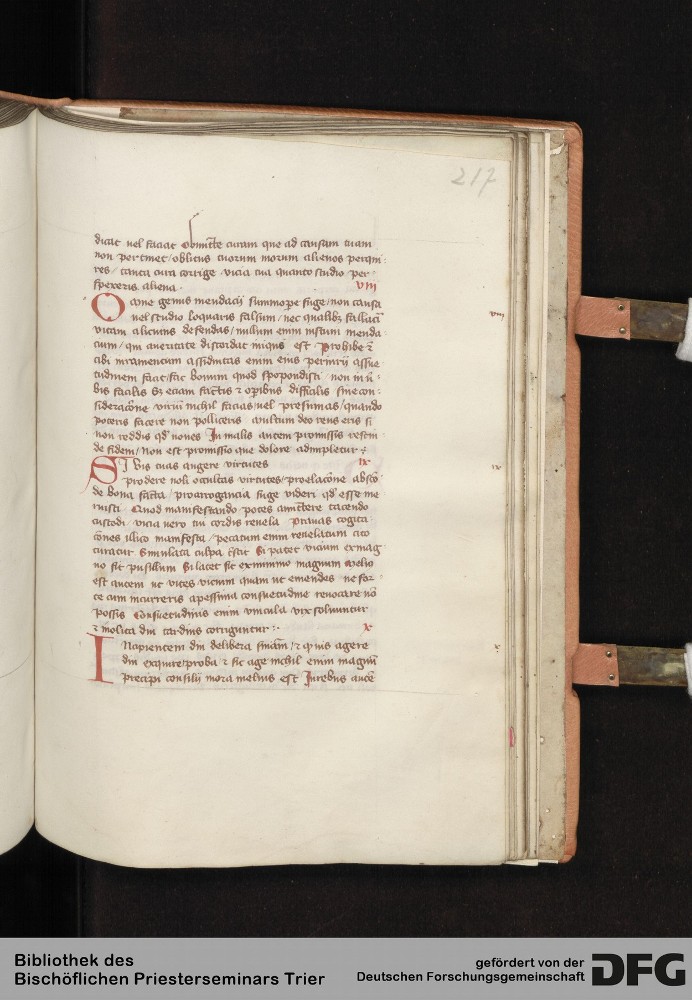 217
dicat uel faciat Obmitte curam que ad causam tuam
non pertinet / oblitus tuorum morum alienos perqui
res / tanta cura corrige vicia tua quanto studio per
spexeris aliena
VIII
Omne genus mendacij summope fuge / non casu
viij
nec studio loquaris falsum / nec qualibz fallacia
vitam alicuius defendas / nullum enim iustum menda
cium / qui a ueritate discordat iniquus est Prohibe et
tibi iuramentum assiduitas enim eius periurij assue
tudinem facit / fac bonum quod spopondisti non in u
bis facilis sz eciam factis et opibus difficilis sine con
sideracione virium nichil facias / uel presumas / quando
poteris facere non polliceris multum deo reus eris si
non reddis qd vones In malis autem promissis rescin
de fidem / non est promissio que dolore adimpletur
IX
Si vis tuas augere virtutes
ix
prodere noli occultas virtutes / pro elacione absco
de bona facta / pro arrogancia fuge videri qd esse me
ruisti Quod manifestando potes amittere tacendo
custodi / vicia uero tui cordis reuela Prauas cogita
ciones illico manifesta / peccatum enim reuelatum cito
curatur Simulata culpa crescit Si patet vicium ex mag
no fit pusillum Si latet fit ex minimo magnum Melio
est autem ut vites vicium quam ut emendes ne for
te cum incurreris a pessima consuetudine reuocare no
possis Consuetudinis enim vincula vix soluuntur
et inolita diu tardius corriguntur
X
Incipientem diu delibera sentenciam / et quis agere
x
diu exquire / proba et sic age nichil enim magnum
precipi consilij mora melius est In rebus aute
Bibliothek des
Bischöflichen Priesterseminars Trier
gefördert von der
Deutschen Forschungsgemeinschaft
DFG